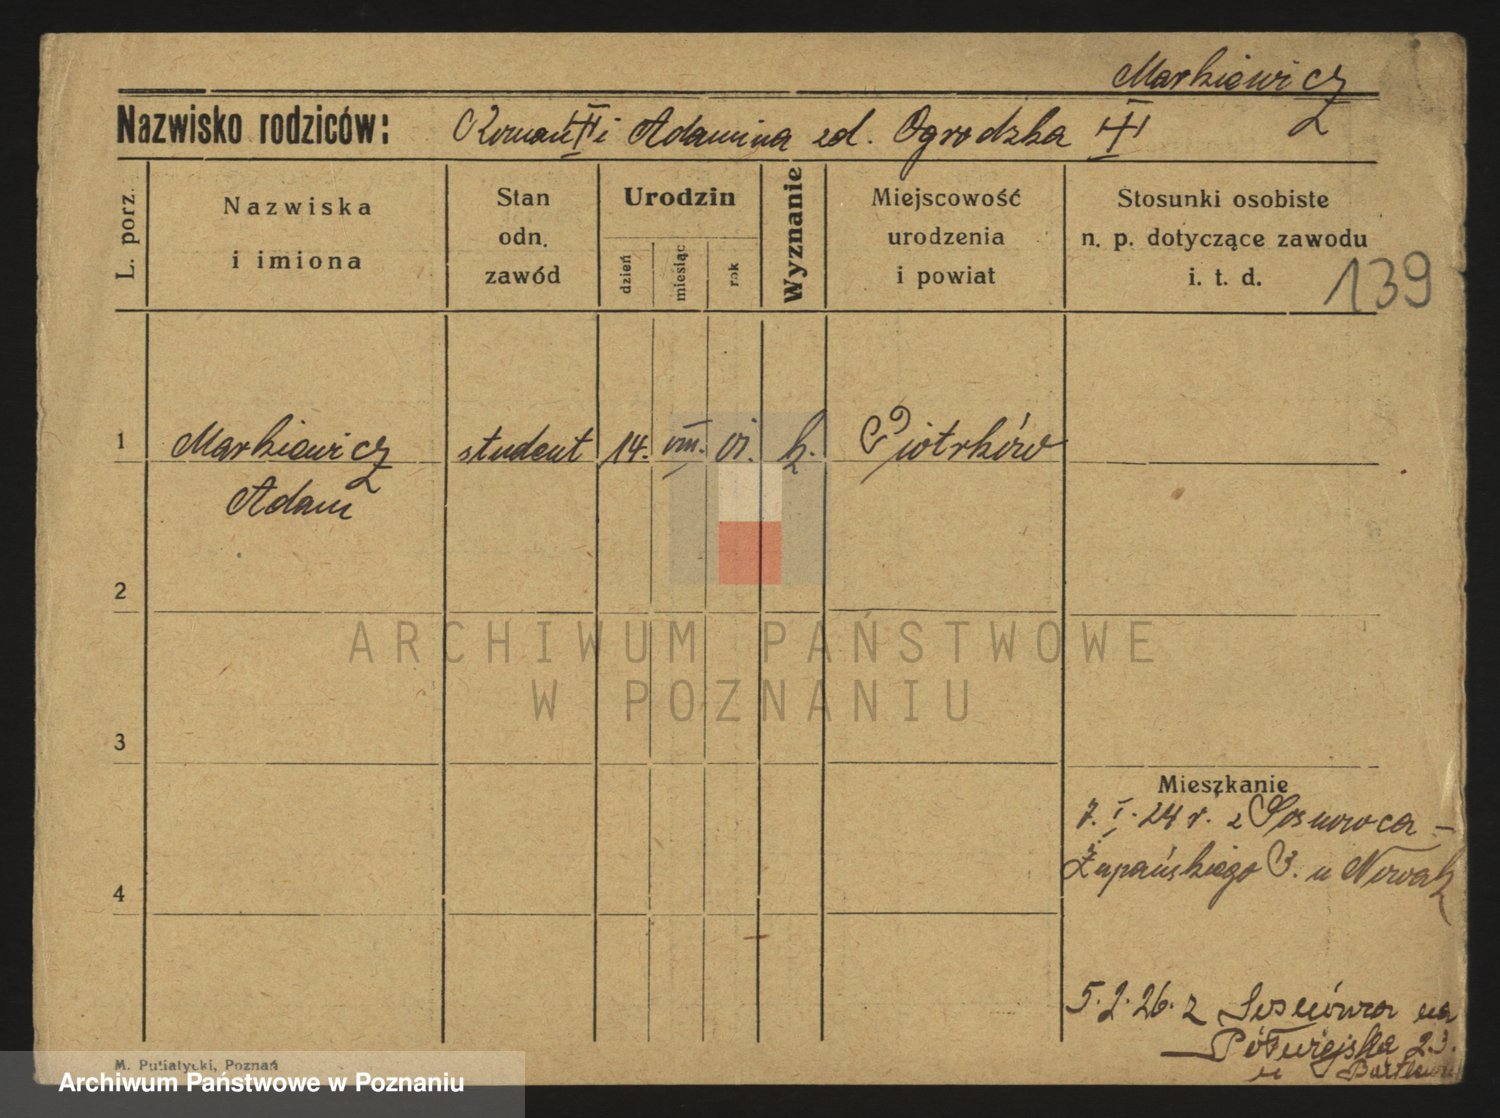 Markiewicz
Nazwisko rodziców: Roman i Adamina zd. Ogrodzka
L. porz.
Nazwiska
i imiona
Stan
odn.
zawód
Urodzin
dzień
miesiąc
rok
Wyznanie
Miejscowość
urodzenia
i powiat
Stosunki osobiste
n. p. dotyczące zawodu
i. t. d.
139
1 Markiewicz student 14. VIII. 01. k. Piotrków
Adam
2
3
4
Mieszkanie
7. I. 24 r. z Sosnowca –
Żupańskiego 3. u Nowak
5.2.26. z Sosnówca na
Półwiejska 23.
u
M. Putiatycki, Poznań
ARCHIWUM PAŃSTWOWE
W POZNANIU
Archiwum Państwowe w Poznaniu